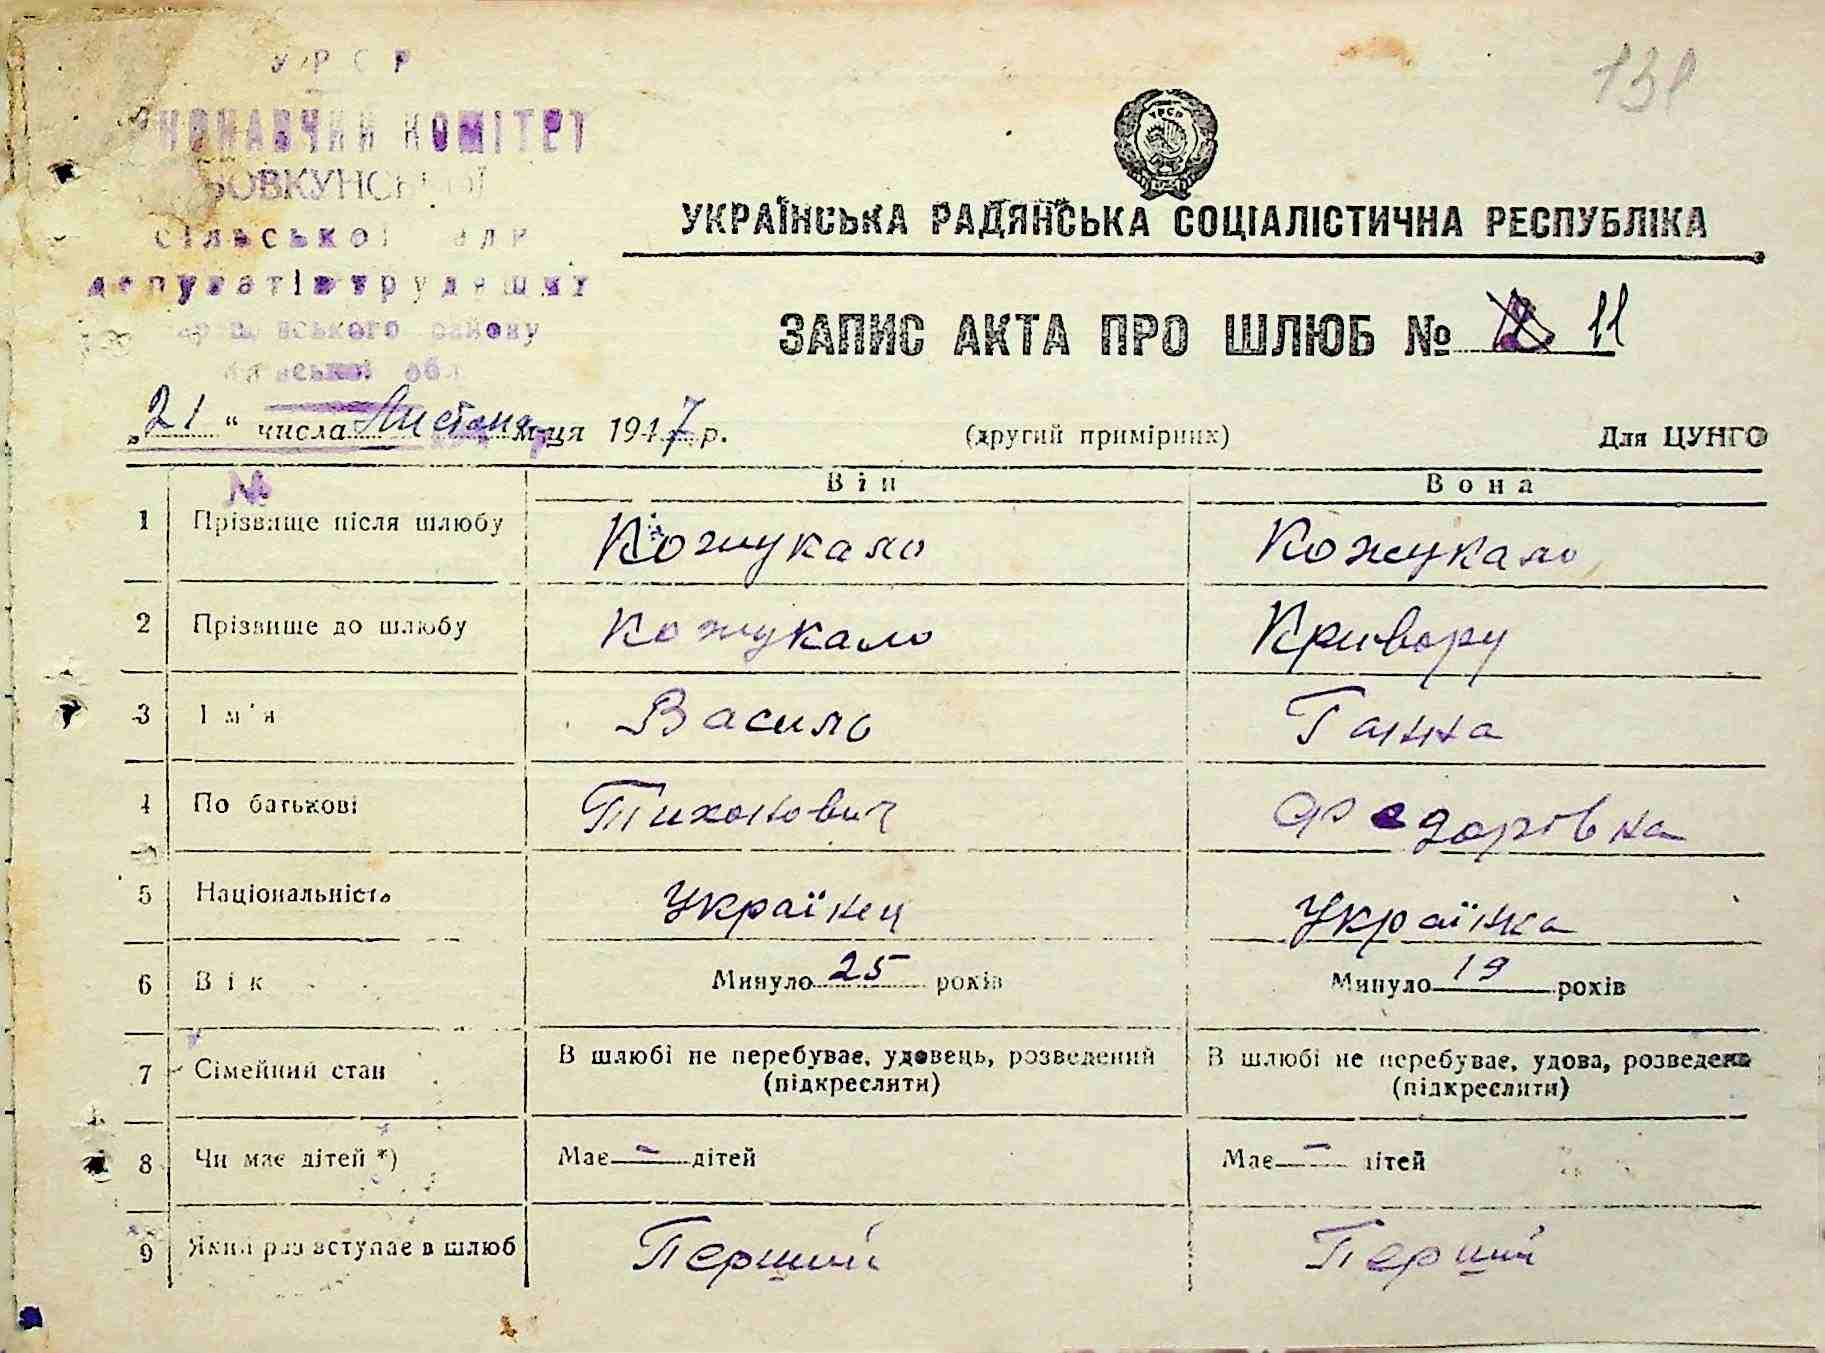 131
УРСР
КОМІТЕТ
СІЛЬСЬКОЇ
депутатів трудящих
району
УКРАЇНСЬКА РАДЯНСЬКА СОЦІАЛІСТИЧНА РЕСПУБЛІКА
ЗАПИС АКТА ПРО ШЛЮБ № 11
„21“ числа Листопа м-ця 1947 р. (другий примірник) Для ЦУНГО
№ Він Вона
1 Прізвище після шлюбу Кожукало Кожукало
2 Прізвище до шлюбу Кожукало Кривору
3 Ім'я Василь Ганна
4 По батькові Тихонович Федорівна
5 Національність Українец Українка
6 Вік Минуло 25 років Минуло 19 років
7 Сімейний стан В шлюбі не перебуває, удовець, розведений В шлюбі не перебуває, удова, розведена
(підкреслити) (підкреслити)
8 Чи має дітей *) Має — дітей Має — дітей
9 Який раз вступає в шлюб Перший Перший